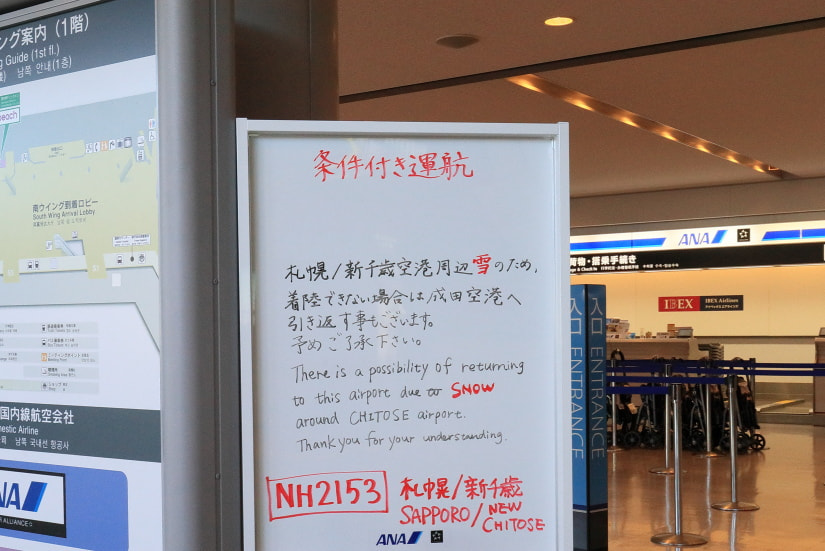 ング案内 (1階)
g Guide (1st fl.)
남쪽 안내(1층)
each
南ウイング到着ロビー
South Wing Arrival Lobby
国内線航空会社
mestic Airline
남쪽 국내선 항공사
ANA
R ALLIANCE
条件付き運航
札幌/新千歳空港周辺雪のため,
着陸できない場合は成田空港へ
引き返す事もございます。
予めご了承下さい。
There is a possibility of returning
to this airport due to SNOW
around CHITOSE airport.
Thank you for your understanding.
NH2153
札幌/新千歳
SAPPORO/NEW CHITOSE
ANA
ANA
荷物・搭乗手続き
IBEX
IBEX Airlines
入口 ENTRANCE
入口 ENTRANCE